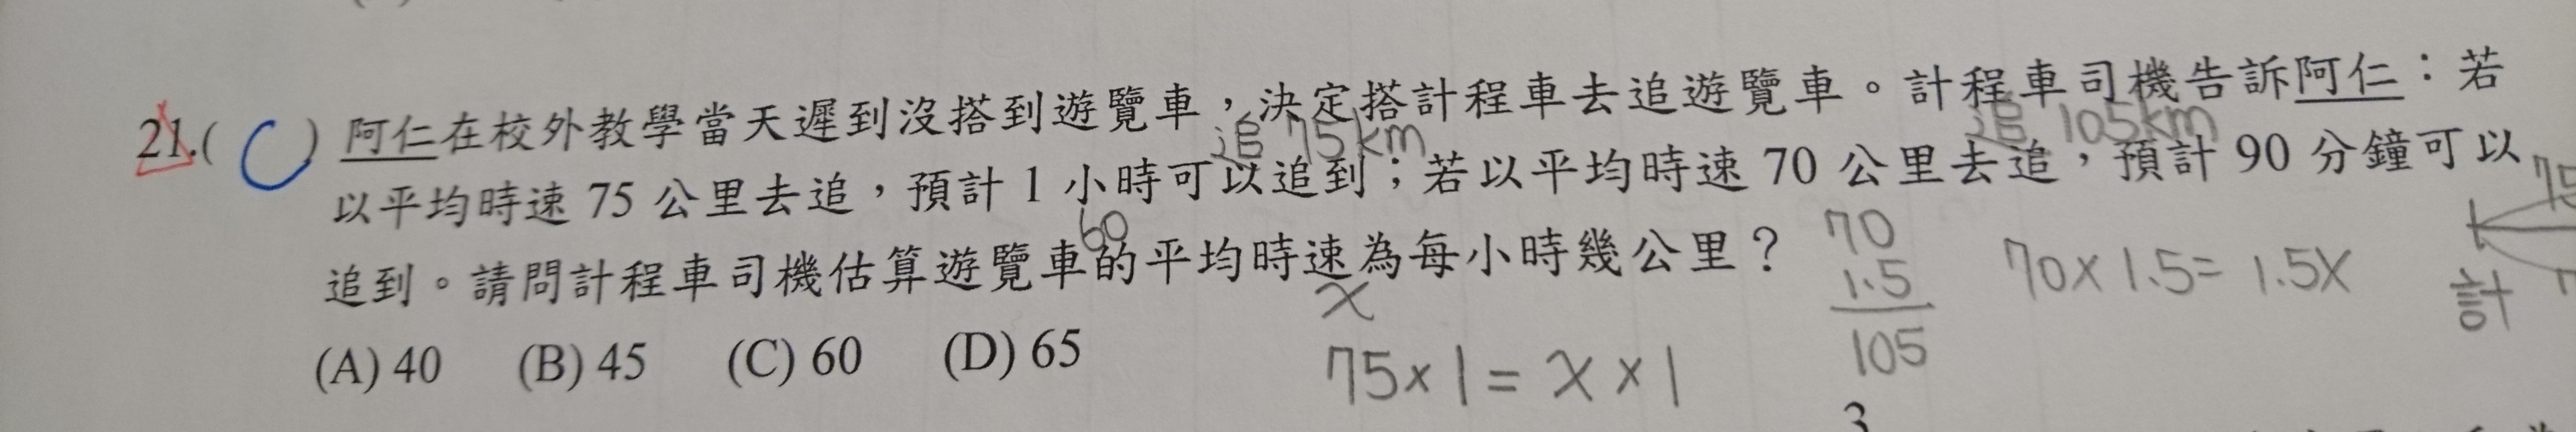 21.( C ) 阿仁在校外教學當天遲到沒搭到遊覽車，決定搭計程車去追遊覽車。計程車司機告訴阿仁：若
追 75km
追 105km
以平均時速 75 公里去追，預計 1 小時可以追到；若以平均時速 70 公里去追，預計 90 分鐘可以
60
追到。請問計程車司機估算遊覽車的平均時速為每小時幾公里？
x
70
1.5
105
70×1.5= 1.5x
計
(A) 40 (B) 45 (C) 60 (D) 65
75×1=x×1